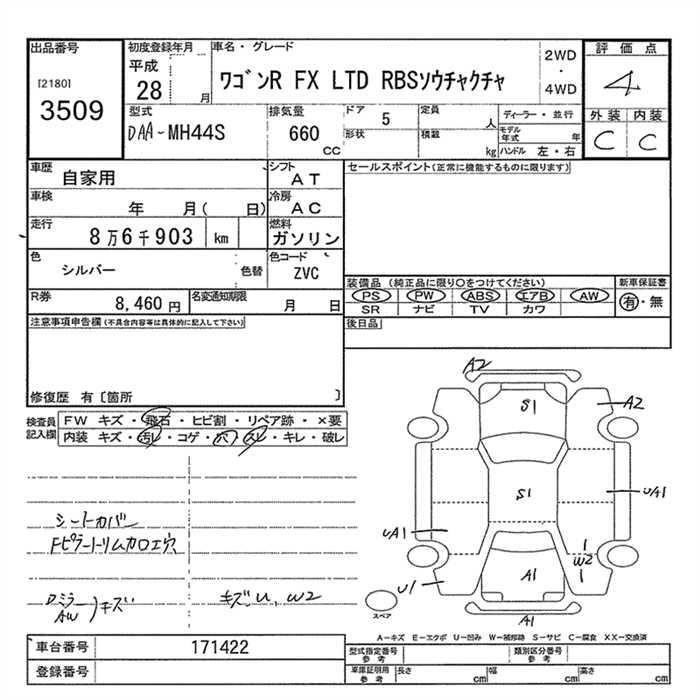 出品番号 初度登録年月 車名・グレード 2WD ・ 4WD 評価点
[2180] 3509 平成 28 月 ワゴンR FX LTD RBSソウチャクチャ 4
型式 DAA-MH44S 排気量 660 cc ドア 5 定員 人 ディーラー・並行 外装 内装
形状 積載 kg モデル年式 年 ハンドル 左・右 C C
車歴 自家用 シフト AT セールスポイント(正常に機能するものに限ります)
車検 年 月( 日) 冷房 AC
走行 8万6千903 km 燃料 ガソリン
色 シルバー 色替 色コード ZVC
装備品 (純正品に限り○をつけてください) 新車保証書
PS PW ABS エアB AW 有・無
SR ナビ TV カワ
R券 8,460 円 名変通知期限 月 日
後日品
注意事項申告欄(不具合内容等は具体的に記入して下さい)
修復歴 有〔箇所 〕
検査員記入欄 FW キズ・飛石・ヒビ割・リペア跡・×要
内装 キズ・汚レ・コゲ・穴・スレ・キレ・破レ
シートカバー
Fピラートリムカロエ穴
Dミラー AW キズ
キズ、U、W2
A2
S1
A2
S1
UA1
UA1
W2
U1
A1
A1
スペア
A-キズ E-エクボ U-凹み W-補修跡 S-サビ C-腐食 XX-交換済
車台番号 171422
登録番号
型式指定番号 参考 類別区分番号 参考
車庫証明用 参考 長さ cm 幅 cm 高さ cm